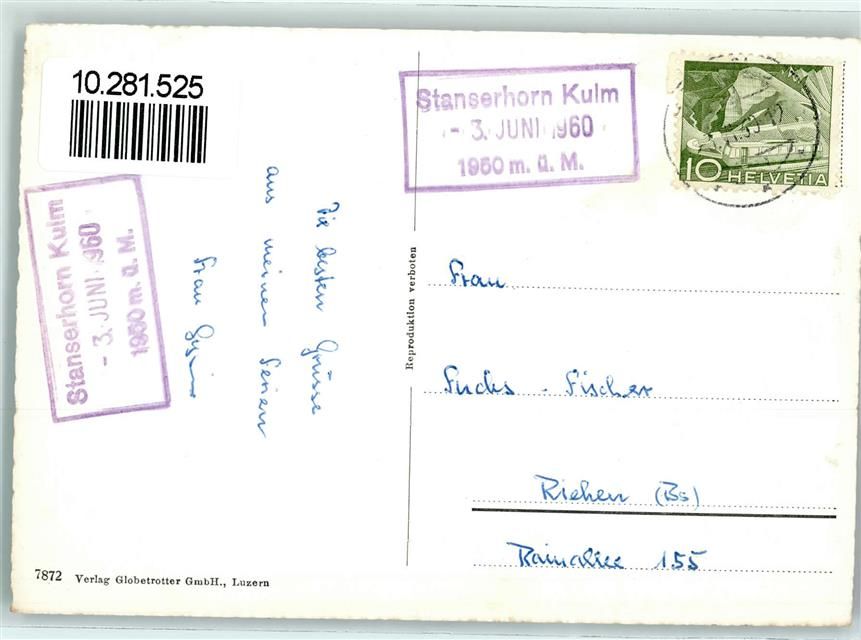 10.281.525
Stanserhorn Kulm
- 3. JUNI 1960
1950 m. ü. M.
Stanserhorn Kulm
- 3. JUNI 1960
1950 m. ü. M.
10 HELVETIA
Die besten Grüsse
aus meinen Ferien
Frau
Reproduktion verboten
Frau
Fuchs - Fischer
Riehen (Bs)
Rainallee 155
7872 Verlag Globetrotter GmbH., Luzern